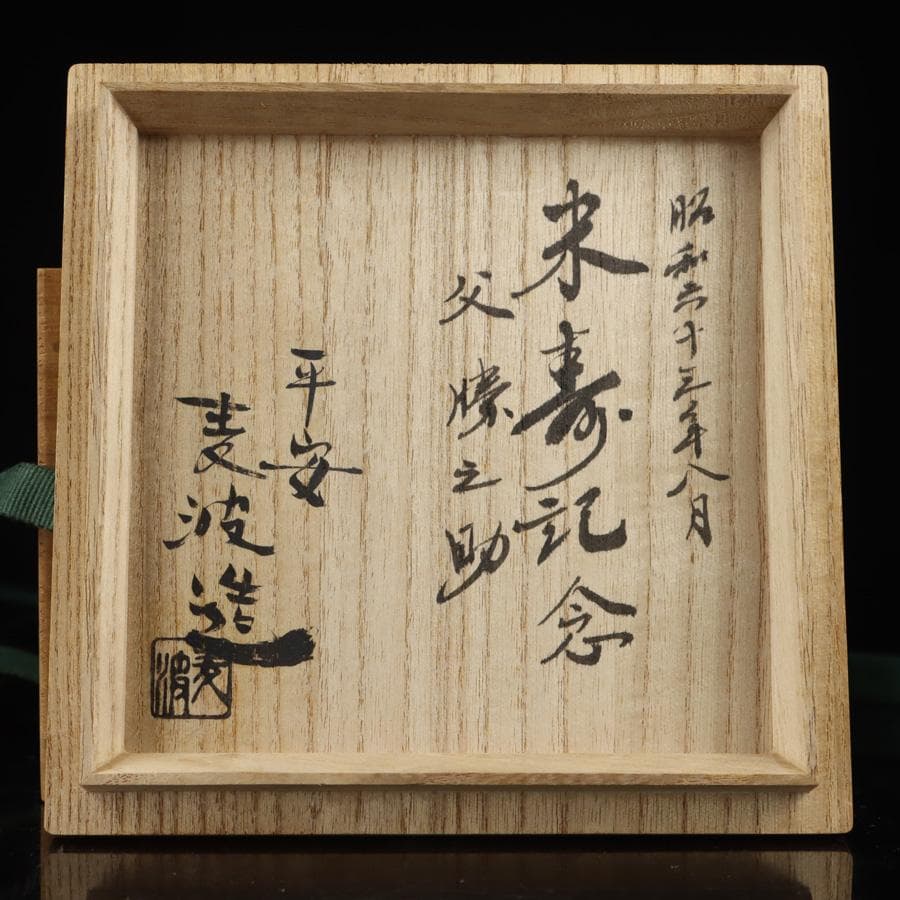 昭和六十三年八月
米寿記念
父 勝之助
平安
麦波造
麦波